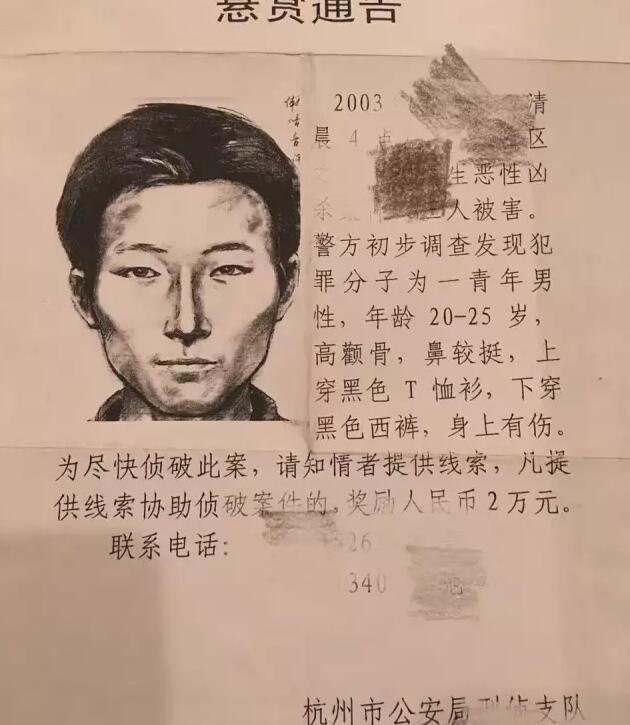 悬赏通告
2003 清
晨 4 点 区
生恶性凶
杀 人被害。
警方初步调查发现犯
罪分子为一青年男
性，年龄 20-25 岁，
高颧骨，鼻较挺，上
穿黑色 T 恤衫，下穿
黑色西裤，身上有伤。
为尽快侦破此案，请知情者提供线索，凡提
供线索协助侦破案件的。奖励人民币 2 万元。
联系电话：
326
340
杭州市公安局刑侦支队